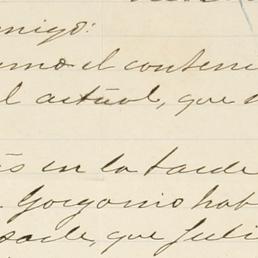 amigo:
el conteni
l actual, que
s en la tarde
Gorgonio hab
que Juli